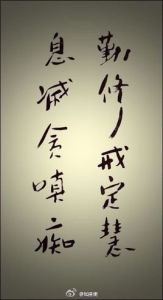 勤修戒定慧
息滅貪嗔痴